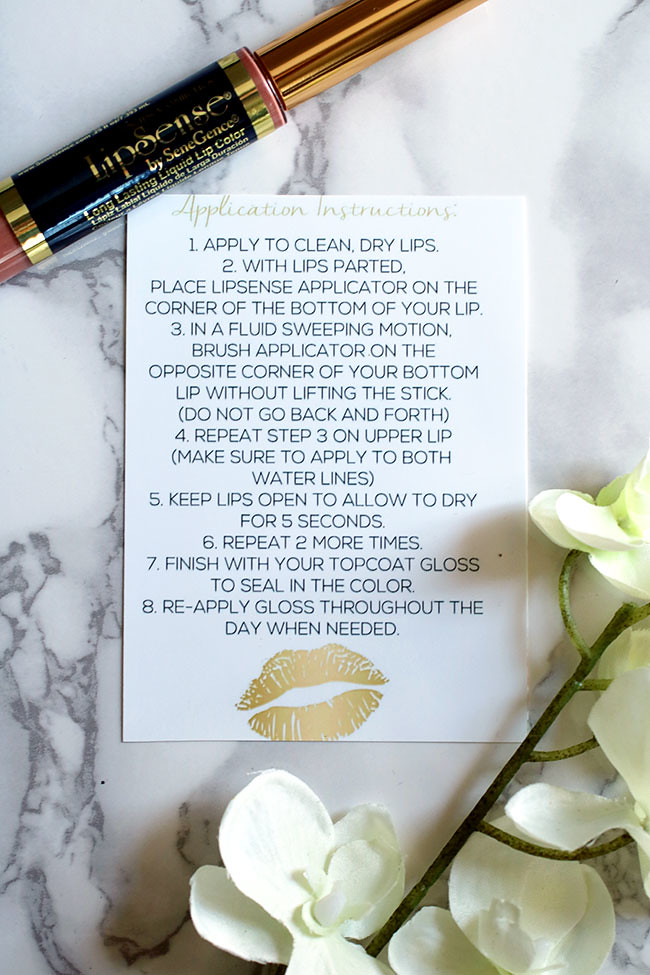 LipSense®
by SeneGence®
Long Lasting Liquid Lip Color
Lápiz Labial Líquido de Larga Duración
Application Instructions:
1. APPLY TO CLEAN, DRY LIPS.
2. WITH LIPS PARTED,
PLACE LIPSENSE APPLICATOR ON THE
CORNER OF THE BOTTOM OF YOUR LIP.
3. IN A FLUID SWEEPING MOTION,
BRUSH APPLICATOR ON THE
OPPOSITE CORNER OF YOUR BOTTOM
LIP WITHOUT LIFTING THE STICK.
(DO NOT GO BACK AND FORTH)
4. REPEAT STEP 3 ON UPPER LIP
(MAKE SURE TO APPLY TO BOTH
WATER LINES)
5. KEEP LIPS OPEN TO ALLOW TO DRY
FOR 5 SECONDS.
6. REPEAT 2 MORE TIMES.
7. FINISH WITH YOUR TOPCOAT GLOSS
TO SEAL IN THE COLOR.
8. RE-APPLY GLOSS THROUGHOUT THE
DAY WHEN NEEDED.